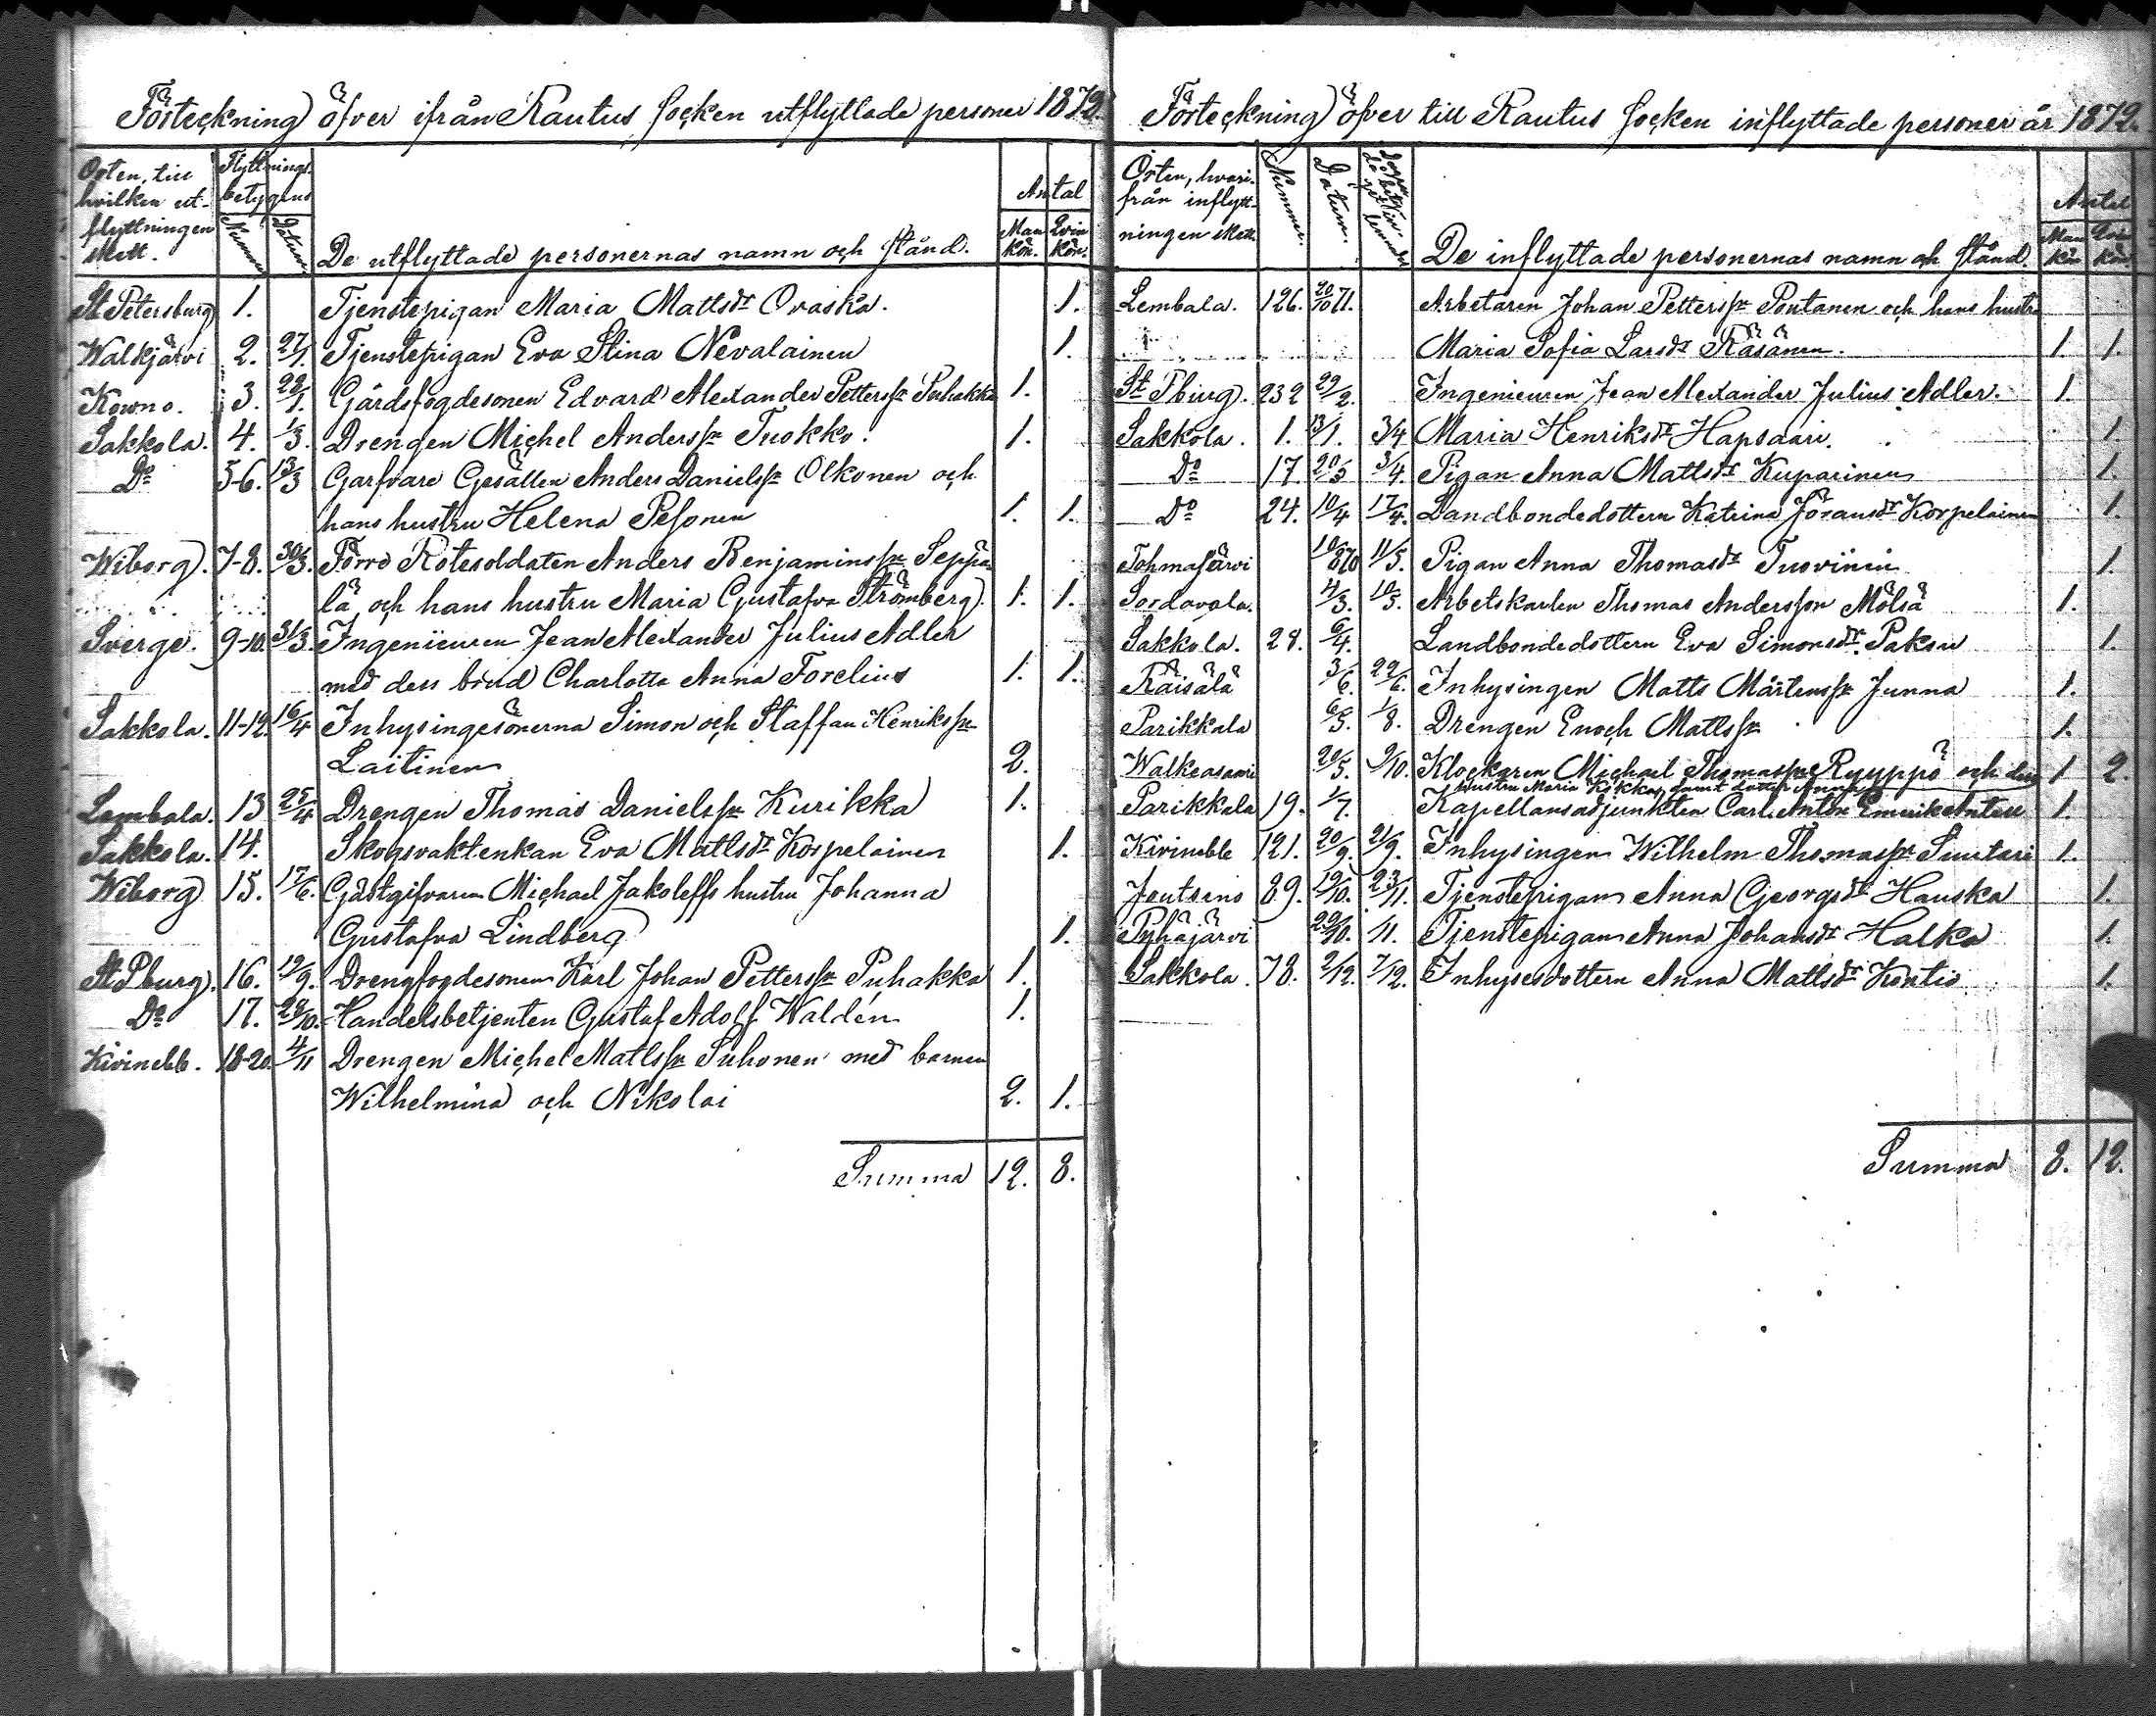 Förteckning öfver ifrån Rautus socken utflyttade personer 1872.
Orten, till hvilken utflyttningen skett. Flyttnings betygens Nummer Datum De utflyttade personernas namn och stånd. Antal Man kön. Qvin kön.
St Petersburg 1. Tjenstepigan Maria Mattsdr Oraska. 1.
Walkjärvi 2. 27/1. Tjenstepigan Eva Stina Nevalainen 1.
Kowno. 3. 29/1. Gårdsfogdesonen Edvard Alexander Petterssn Puhakka 1.
Sakkola. 4. 1/3. Drengen Michel Anderssn Tuokko. 1.
Do 5-6. 13/3 Garfvare Gesällen Anders Danielssn Olkonen och
hans hustru Helena Pesonen 1. 1.
Wiborg. 7-8. 30/3. Förre Rotesoldaten Anders Benjaminssn Seppä
lä och hans hustru Maria Gustafva Strömberg. 1. 1.
Sverge. 9-10. 31/3. Ingeniieuren Jean Alexander Julius Adler
med dess brud Charlotta Anna Forelius 1. 1.
Sakkola. 11-12. 16/4 Inhysingesönerna Simon och Staffan Henrikssn
Laitinen 2.
Lembala. 13 25/4 Drengen Thomas Danielssn Kurikka 1.
Sakkola. 14. Skogsvaktenkan Eva Mattsdr Korpelainen 1.
Wiborg 15. 17/6. Gästgifvaren Michael Jakoleffs hustru Johanna
Gustafva Lindberg 1.
St Pburg. 16. 19/9. Drengfogdesonen Karl Johan Petterssn Puhakka 1.
Do 17. 29/10. Handelsbetjenten Gustaf Adolf Waldén 1.
Kivinebb. 18-20. 4/11 Drengen Michel Mattssn Suhonen med barnen
Wilhelmina och Nikolai 2. 1.
Summa 12. 8.
Förteckning öfver till Rautus socken inflyttade personer år 1872.
Orten, hvarifrån inflyttningen skett. Nummer. Datum. De inflyttade personernas namn och stånd. Antal Man kön Qvin kön.
Lembala. 126. 20/10 71. Arbetaren Johan Petterssn Pontanen och hans hustru
Maria Sofia Larsdr Räsänen. 1. 1.
St Pburg. 232 29/2. Ingenieuren Jean Alexander Julius Adler. 1.
Sakkola. 1. 3/1. 3/4 Maria Henriksdr Hapsaari. 1.
Do 17. 20/3 3/4. Pigan Anna Mattsdr Kuparinen 1.
Do 24. 10/4 17/4. Landbondedottern Katrina Göransdr Korpelainen 1.
Tohmajärvi 870 11/5. Pigan Anna Thomasdr Tuovinen 1.
Sordavala. 4/3. 10/5. Arbetskarlen Thomas Andersson Mölsä 1.
Sakkola. 28. 6/4. Landbondedottern Eva Simonsdr. Paksu 1.
Räisälä 3/6. 22/6. Inhysingen Matts Mårtenssn Junna 1.
Parikkala 6/5. 1/8. Drengen Enoch Mattssn 1.
Walkeasaari 20/5. 9/10. Klockaren Michael Thomassn Ryyppö och dess 1 2.
hustru Maria Kokka, samt dotter Anna
Parikkala 19. 1/7. Kapellansadjunkten Carl Anton Emerik Anteu 1.
Kivinebb 121. 20/9. 21/9. Inhysingen Wilhelm Thomassn Suutari 1.
Jeutseno 89. 19/10. 23/11. Tjenstepigan Anna Georgsdr Hauska 1.
Pyhäjärvi 29/10. 11. Tjenstepigan Anna Johansdr Halka 1.
Sakkola. 78. 2/12. 7/12. Inhysesdottern Anna Mattsdr Kontio 1.
Summa 8. 12.